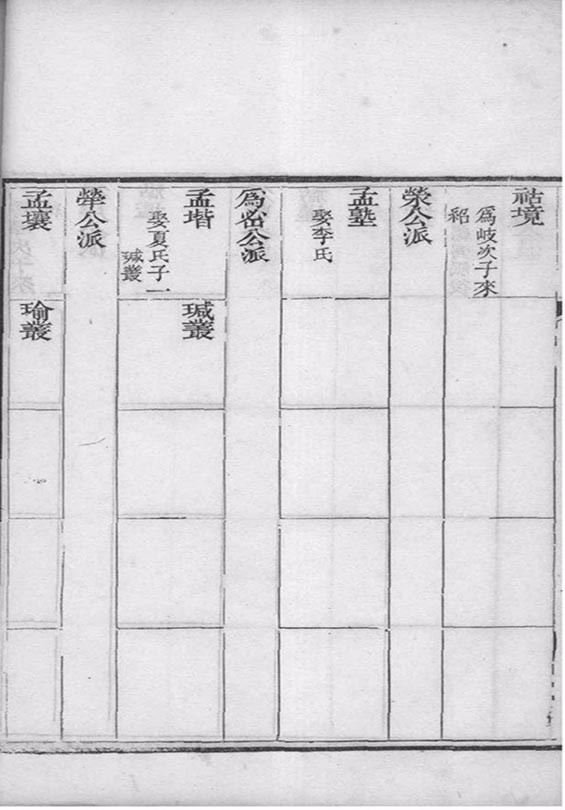 祜境
為岐次子來
紹
榮公派
孟塾
娶李氏
為宻公派
孟堦
娶夏氏子一
瑊叢
瑊叢
犖公派
孟壤
瑜叢